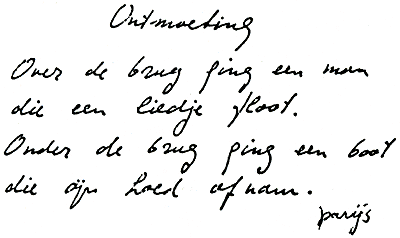 Ontmoeting
Over de brug ging een man
die een liedje floot.
Onder de brug ging een boot
die zijn hoed afnam.
parijs